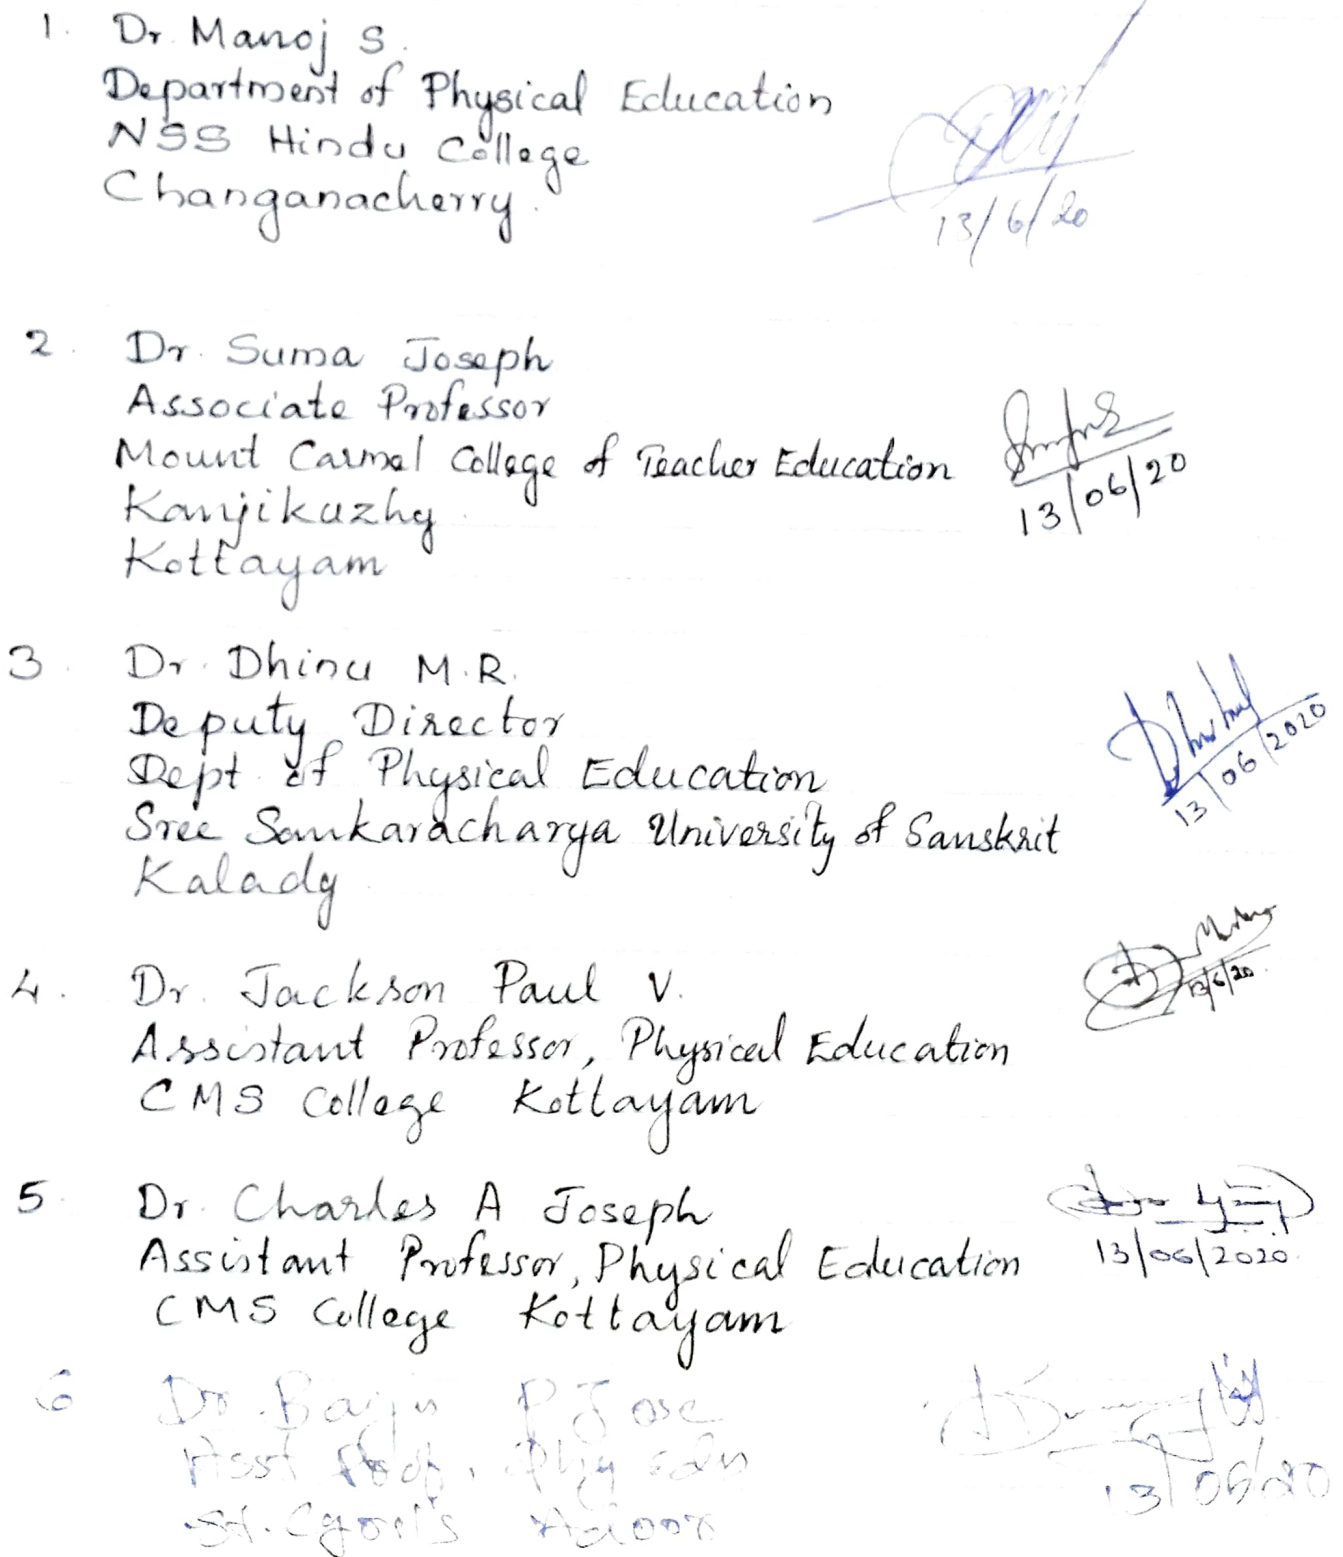 1. Dr. Manoj S.
Department of Physical Education
NSS Hindu College
Changanacherry.
13/6/20
2. Dr. Suma Joseph
Associate Professor
Mount Carmel College of Teacher Education
Kanjikuzhy
Kottayam
13/06/20
3. Dr. Dhinu M.R.
Deputy Director
Dept. of Physical Education
Sree Sankaracharya University of Sanskrit
Kalady
13/06/2020
4. Dr. Jackson Paul V.
Assistant Professor, Physical Education
CMS College Kottayam
13/6/20
5. Dr. Charles A Joseph
Assistant Professor, Physical Education
CMS College Kottayam
13/06/2020
6 Dr. Baiju P Jose
Asst Prof, Phy Edn
St. Cyril's Adoor
13/06/20